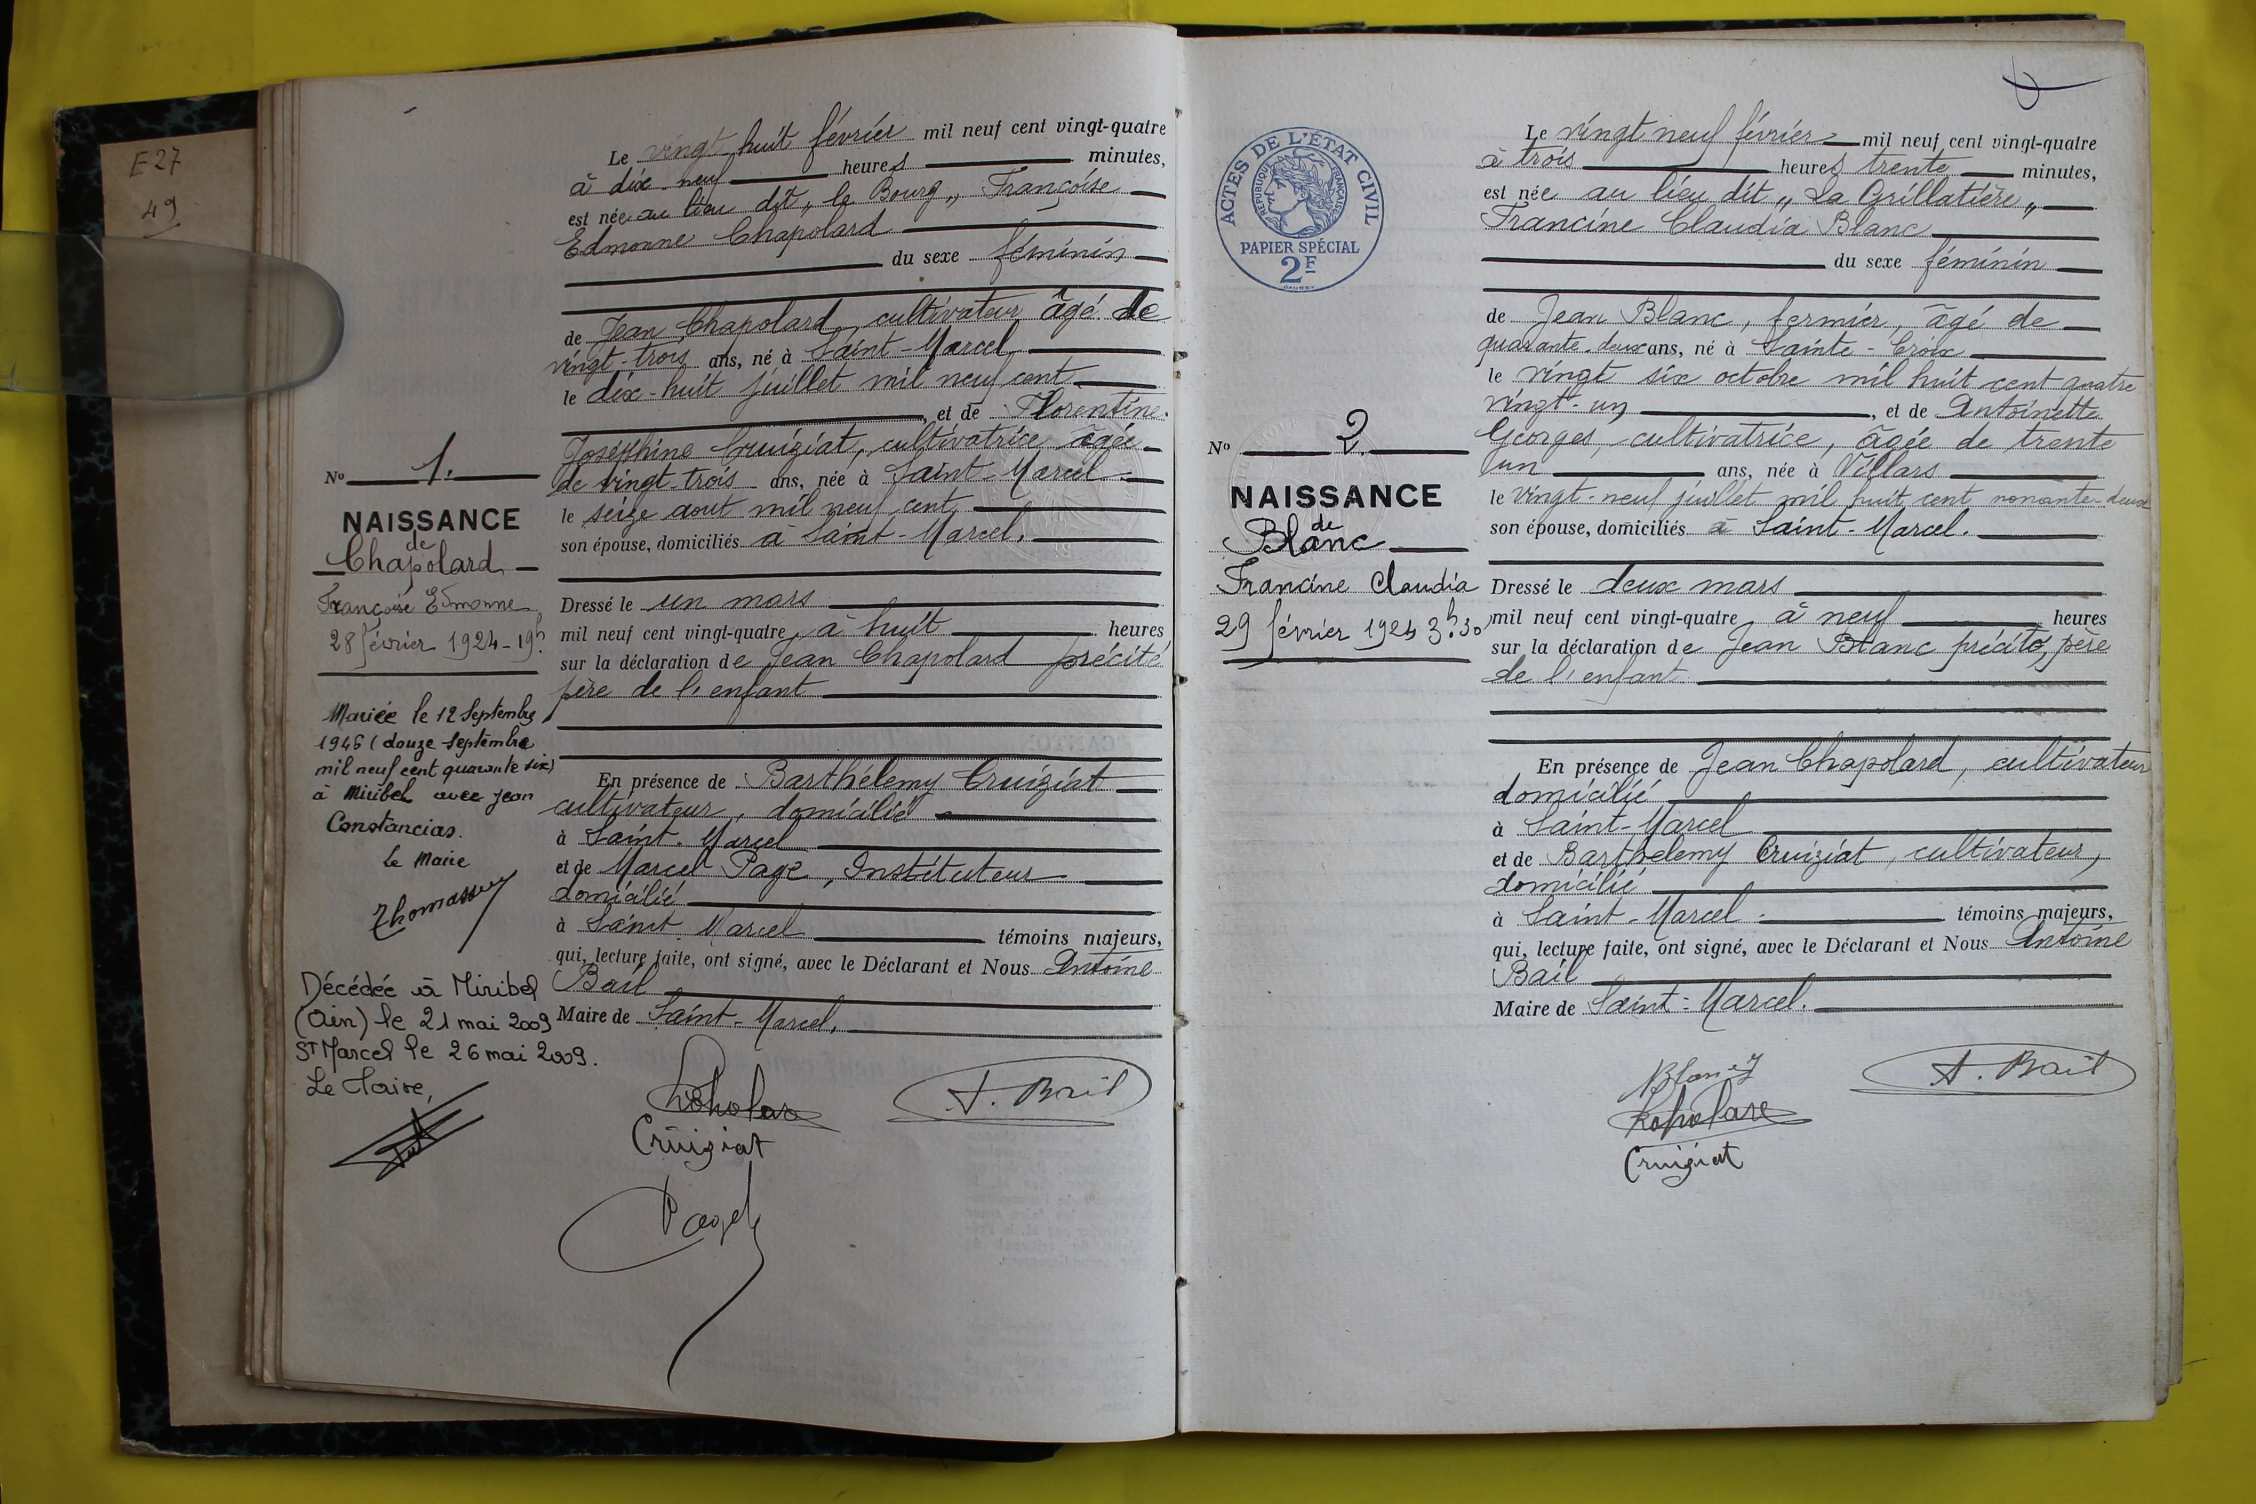 E27
49
Le vingt huit février mil neuf cent vingt-quatre
à dix-neuf heures minutes,
est née au lieu dit „ le Bourg „ Françoise
Edmonne Chapolard
du sexe féminin
de Jean Chapolard, cultivateur âgé de
vingt-trois ans, né à Saint-Marcel
le dix-huit juillet mil neuf cent
, et de Florentine
Joséphine Cruiziat, cultivatrice âgée
de vingt-trois ans, née à Saint-Marcel
le seize aout mil neuf cent
son épouse, domiciliés à Saint-Marcel.
Dressé le un mars
mil neuf cent vingt-quatre, à huit heures
sur la déclaration de Jean Chapolard précité
père de l'enfant
En présence de Barthélemy Cruiziat
cultivateur, domicilié
à Saint-Marcel
et de Marcel Page, Instituteur
domicilié
à Saint Marcel témoins majeurs,
qui, lecture faite, ont signé, avec le Déclarant et Nous Antoine
Bail
Maire de Saint-Marcel.
A. Bail
Cruiziat
Page
No 1.
NAISSANCE
de
Chapolard
Françoise Edmonne
28 février 1924 - 19h.
Mariée le 12 Septembre
1946 (douze septembre
mil neuf cent quarante six)
à Miribel avec Jean
Constancias.
le Maire
Décédée à Miribel
(Ain) le 21 mai 2009
ST Marcel le 26 mai 2009.
Le Maire,
ACTES DE L'ÉTAT CIVIL
RÉPUBLIQUE FRANÇAISE
PAPIER SPÉCIAL
2F
No 2.
NAISSANCE
de
Blanc
Francine Claudia
29 février 1924 3h.30
Le vingt neuf février mil neuf cent vingt-quatre
à trois heures trente minutes,
est née au lieu dit „ La Grillatière „
Francine Claudia Blanc
du sexe féminin
de Jean Blanc, fermier, âgé de
quarante-deux ans, né à Sainte-Croix
le vingt six octobre mil huit cent quatre
vingt-un, et de Antoinette
Georges, cultivatrice, âgée de trente
un ans, née à Villars
le vingt-neuf juillet mil huit cent nonante-deux
son épouse, domiciliés à Saint-Marcel.
Dressé le deux mars
mil neuf cent vingt-quatre à neuf heures
sur la déclaration de Jean Blanc précité, père
de l'enfant
En présence de Jean Chapolard, cultivateur
domicilié
à Saint-Marcel
et de Barthélemy Cruiziat, cultivateur,
domicilié
à Saint-Marcel témoins majeurs,
qui, lecture faite, ont signé, avec le Déclarant et Nous Antoine
Bail
Maire de Saint-Marcel.
A. Bail
Cruiziat